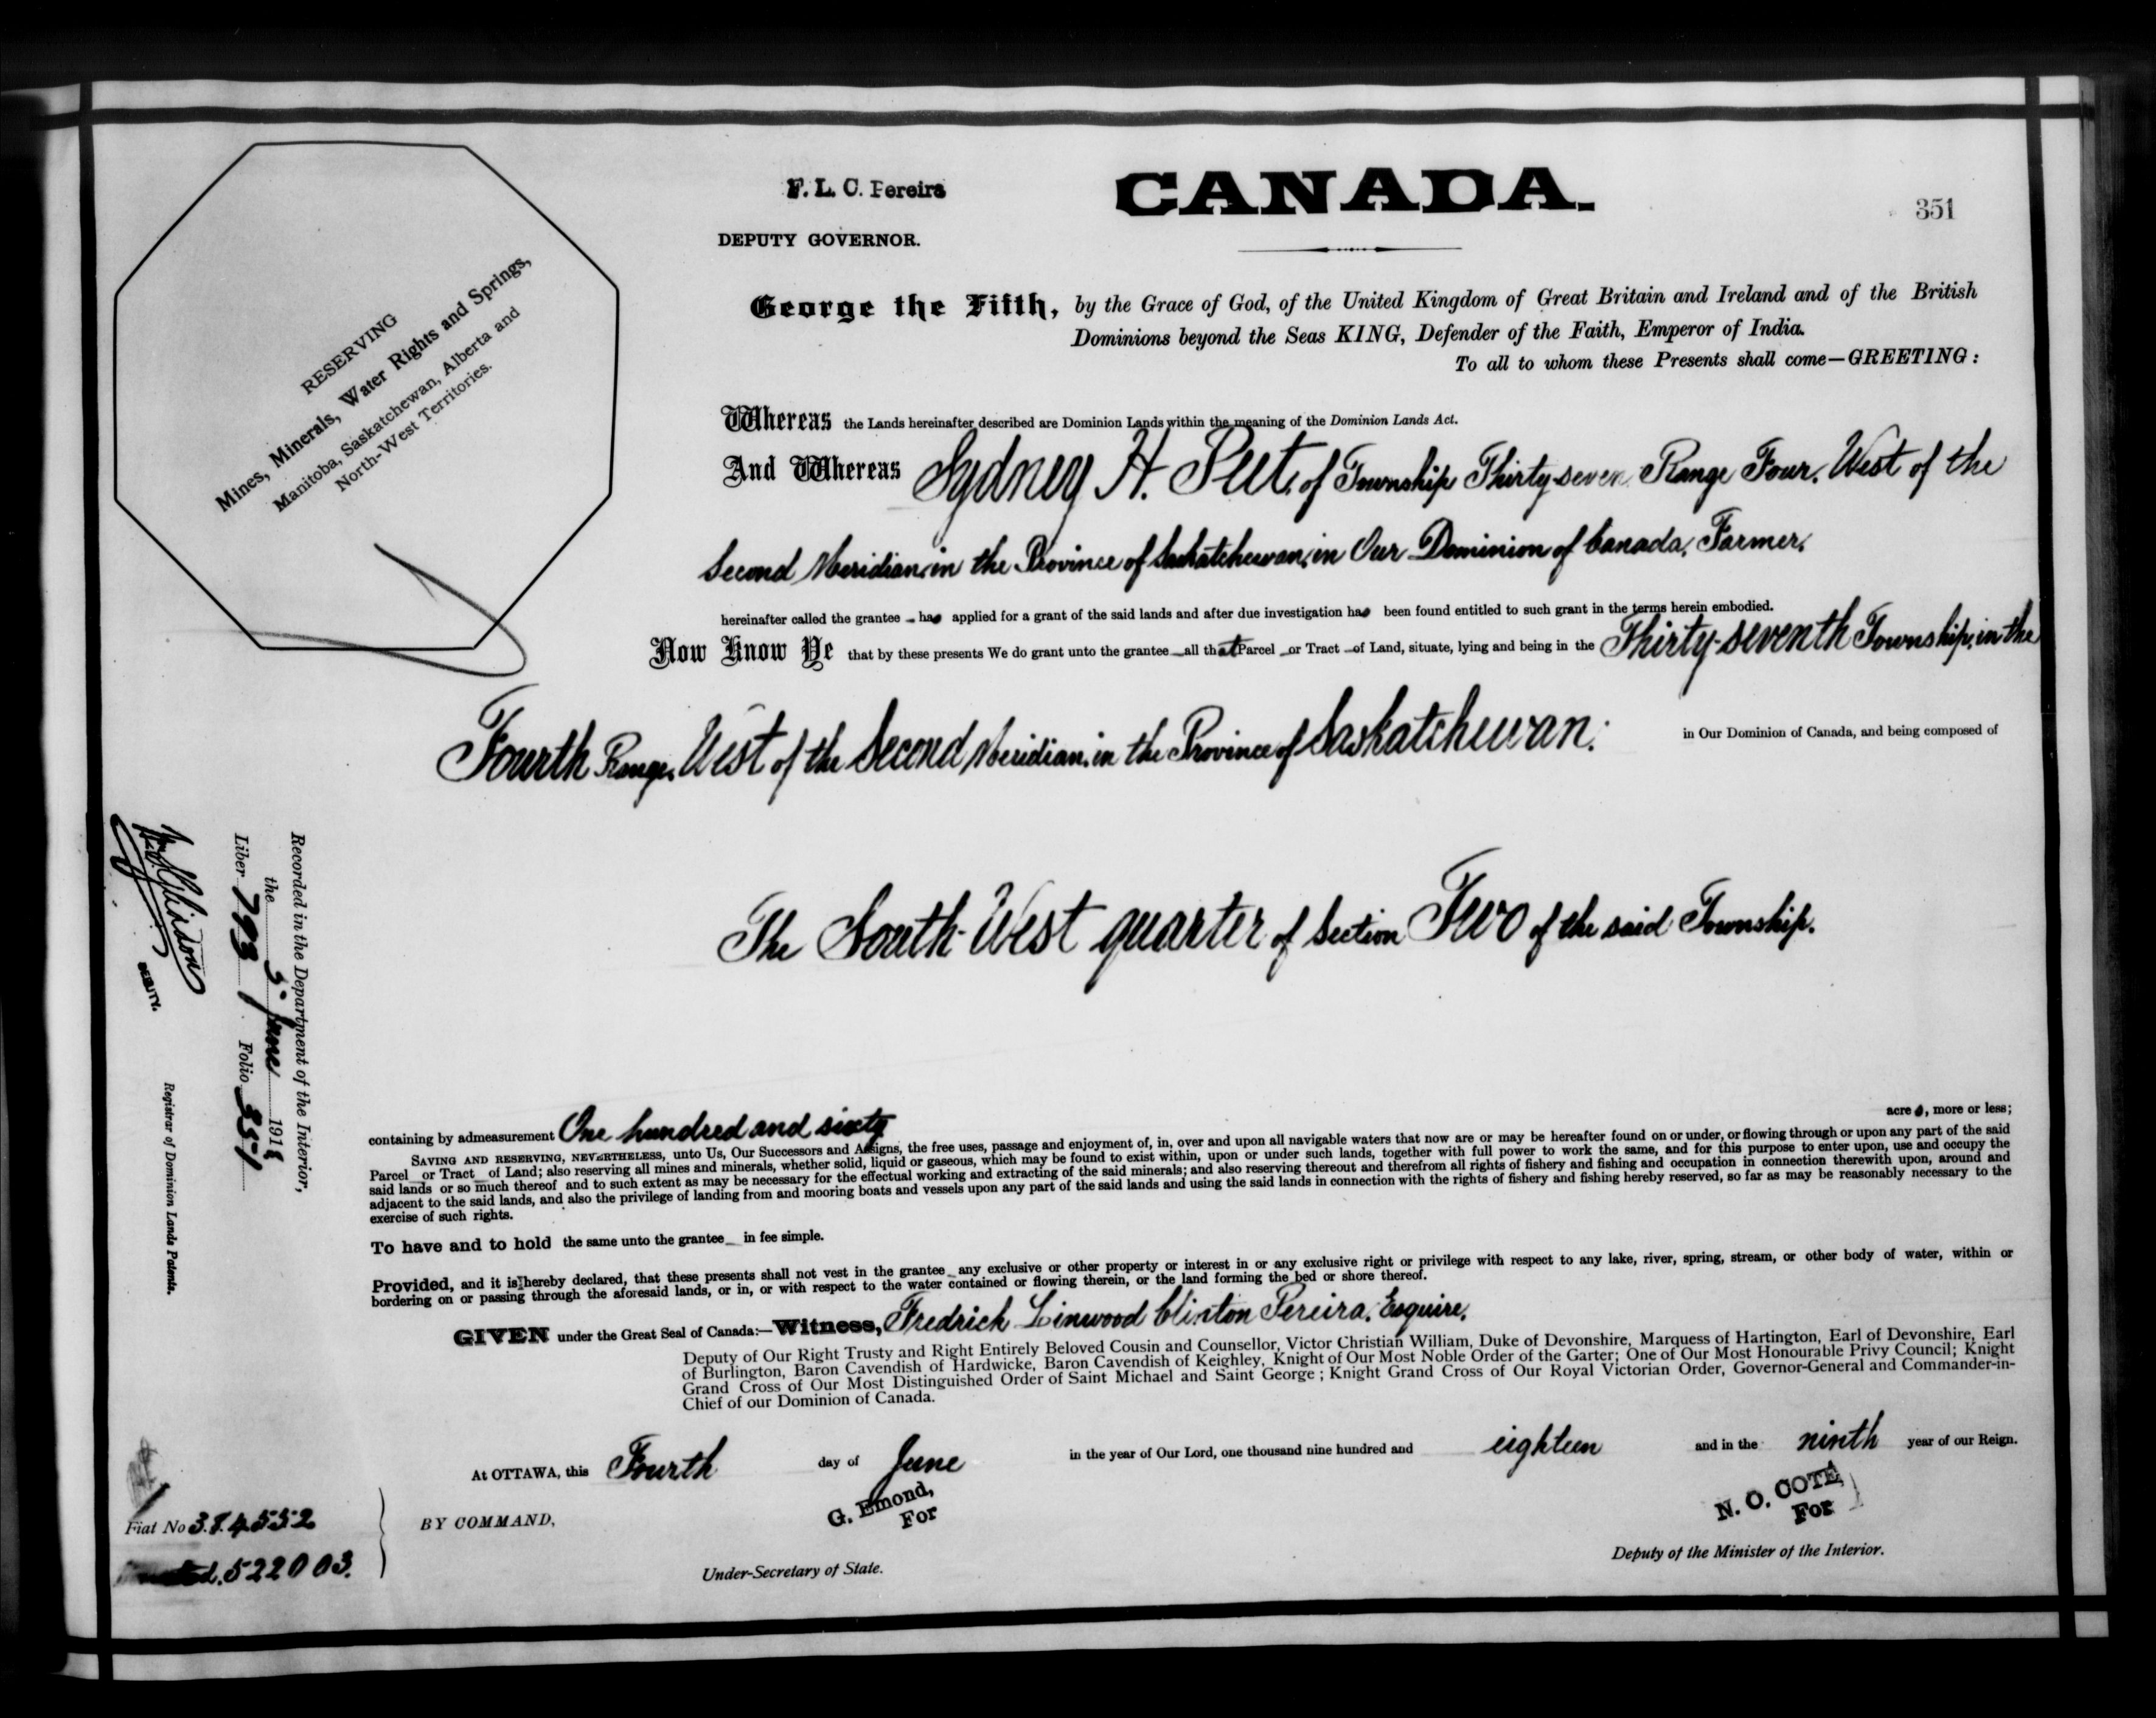 F. L. C. Pereira
CANADA.
351
DEPUTY GOVERNOR.
RESERVING
Mines, Minerals, Water Rights and Springs,
Manitoba, Saskatchewan, Alberta and
North-West Territories.
George the Fifth, by the Grace of God, of the United Kingdom of Great Britain and Ireland and of the British
Dominions beyond the Seas KING, Defender of the Faith, Emperor of India.
To all to whom these Presents shall come—GREETING:
Whereas the Lands hereinafter described are Dominion Lands within the meaning of the Dominion Lands Act.
And Whereas Sydney H. Peet, of Township Thirty-seven Range Four, West of the
Second Meridian, in the Province of Saskatchewan, in Our Dominion of Canada, Farmer,
hereinafter called the grantee has applied for a grant of the said lands and after due investigation has been found entitled to such grant in the terms herein embodied.
Now Know Ye that by these presents We do grant unto the grantee all that Parcel or Tract of Land, situate, lying and being in the Thirty-seventh Township, in the
Fourth Range, West of the Second Meridian, in the Province of Saskatchewan. in Our Dominion of Canada, and being composed of
The South-West quarter of Section Two of the said Township.
Recorded in the Department of the Interior,
the 5. June 1918
Liber 793 Folio 351
DEPUTY.
Registrar of Dominion Lands Patents.
containing by admeasurement One hundred and sixty acres, more or less;
SAVING AND RESERVING, NEVERTHELESS, unto Us, Our Successors and Assigns, the free uses, passage and enjoyment of, in, over and upon all navigable waters that now are or may be hereafter found on or under, or flowing through or upon any part of the said
Parcel or Tract of Land; also reserving all mines and minerals, whether solid, liquid or gaseous, which may be found to exist within, upon or under such lands, together with full power to work the same, and for this purpose to enter upon, use and occupy the
said lands or so much thereof and to such extent as may be necessary for the effectual working and extracting of the said minerals; and also reserving thereout and therefrom all rights of fishery and fishing and occupation in connection therewith upon, around and
adjacent to the said lands, and also the privilege of landing from and mooring boats and vessels upon any part of the said lands and using the said lands in connection with the rights of fishery and fishing hereby reserved, so far as may be reasonably necessary to the
exercise of such rights.
To have and to hold the same unto the grantee in fee simple.
Provided, and it is hereby declared, that these presents shall not vest in the grantee any exclusive or other property or interest in or any exclusive right or privilege with respect to any lake, river, spring, stream, or other body of water, within or
bordering on or passing through the aforesaid lands, or in, or with respect to the water contained or flowing therein, or the land forming the bed or shore thereof.
GIVEN under the Great Seal of Canada:—Witness, Fredrick Linwood Clinton Pereira, Esquire,
Deputy of Our Right Trusty and Right Entirely Beloved Cousin and Counsellor, Victor Christian William, Duke of Devonshire, Marquess of Hartington, Earl of Devonshire, Earl
of Burlington, Baron Cavendish of Hardwicke, Baron Cavendish of Keighley, Knight of Our Most Noble Order of the Garter; One of Our Most Honourable Privy Council; Knight
Grand Cross of Our Most Distinguished Order of Saint Michael and Saint George; Knight Grand Cross of Our Royal Victorian Order, Governor-General and Commander-in-
Chief of our Dominion of Canada.
At OTTAWA, this Fourth day of June in the year of Our Lord, one thousand nine hundred and eighteen and in the ninth year of our Reign.
G. Emond,
For
N. O. COTE,
For
Fiat No 384552
522003.
BY COMMAND,
Under-Secretary of State.
Deputy of the Minister of the Interior.